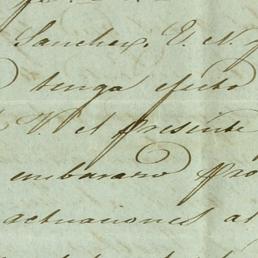 Sanchez, E. N.
tenga efecto
V. el presente
embarazo pro
actuaciones al